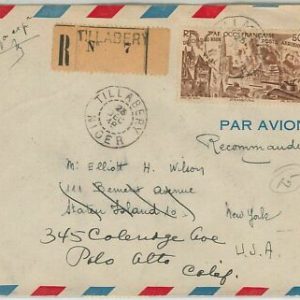 TILLABERY
R No 7
AF. OCC. FRANÇAISE
POSTE AERIENNE
TILLABERY
NIGER
PAR AVION
Recommandé
Mr Elliott H. Wilson
111 Bement Avenue
Staten Island 10. New York
U.S.A.
345 Coleridge Ave
Palo Alto Calif.